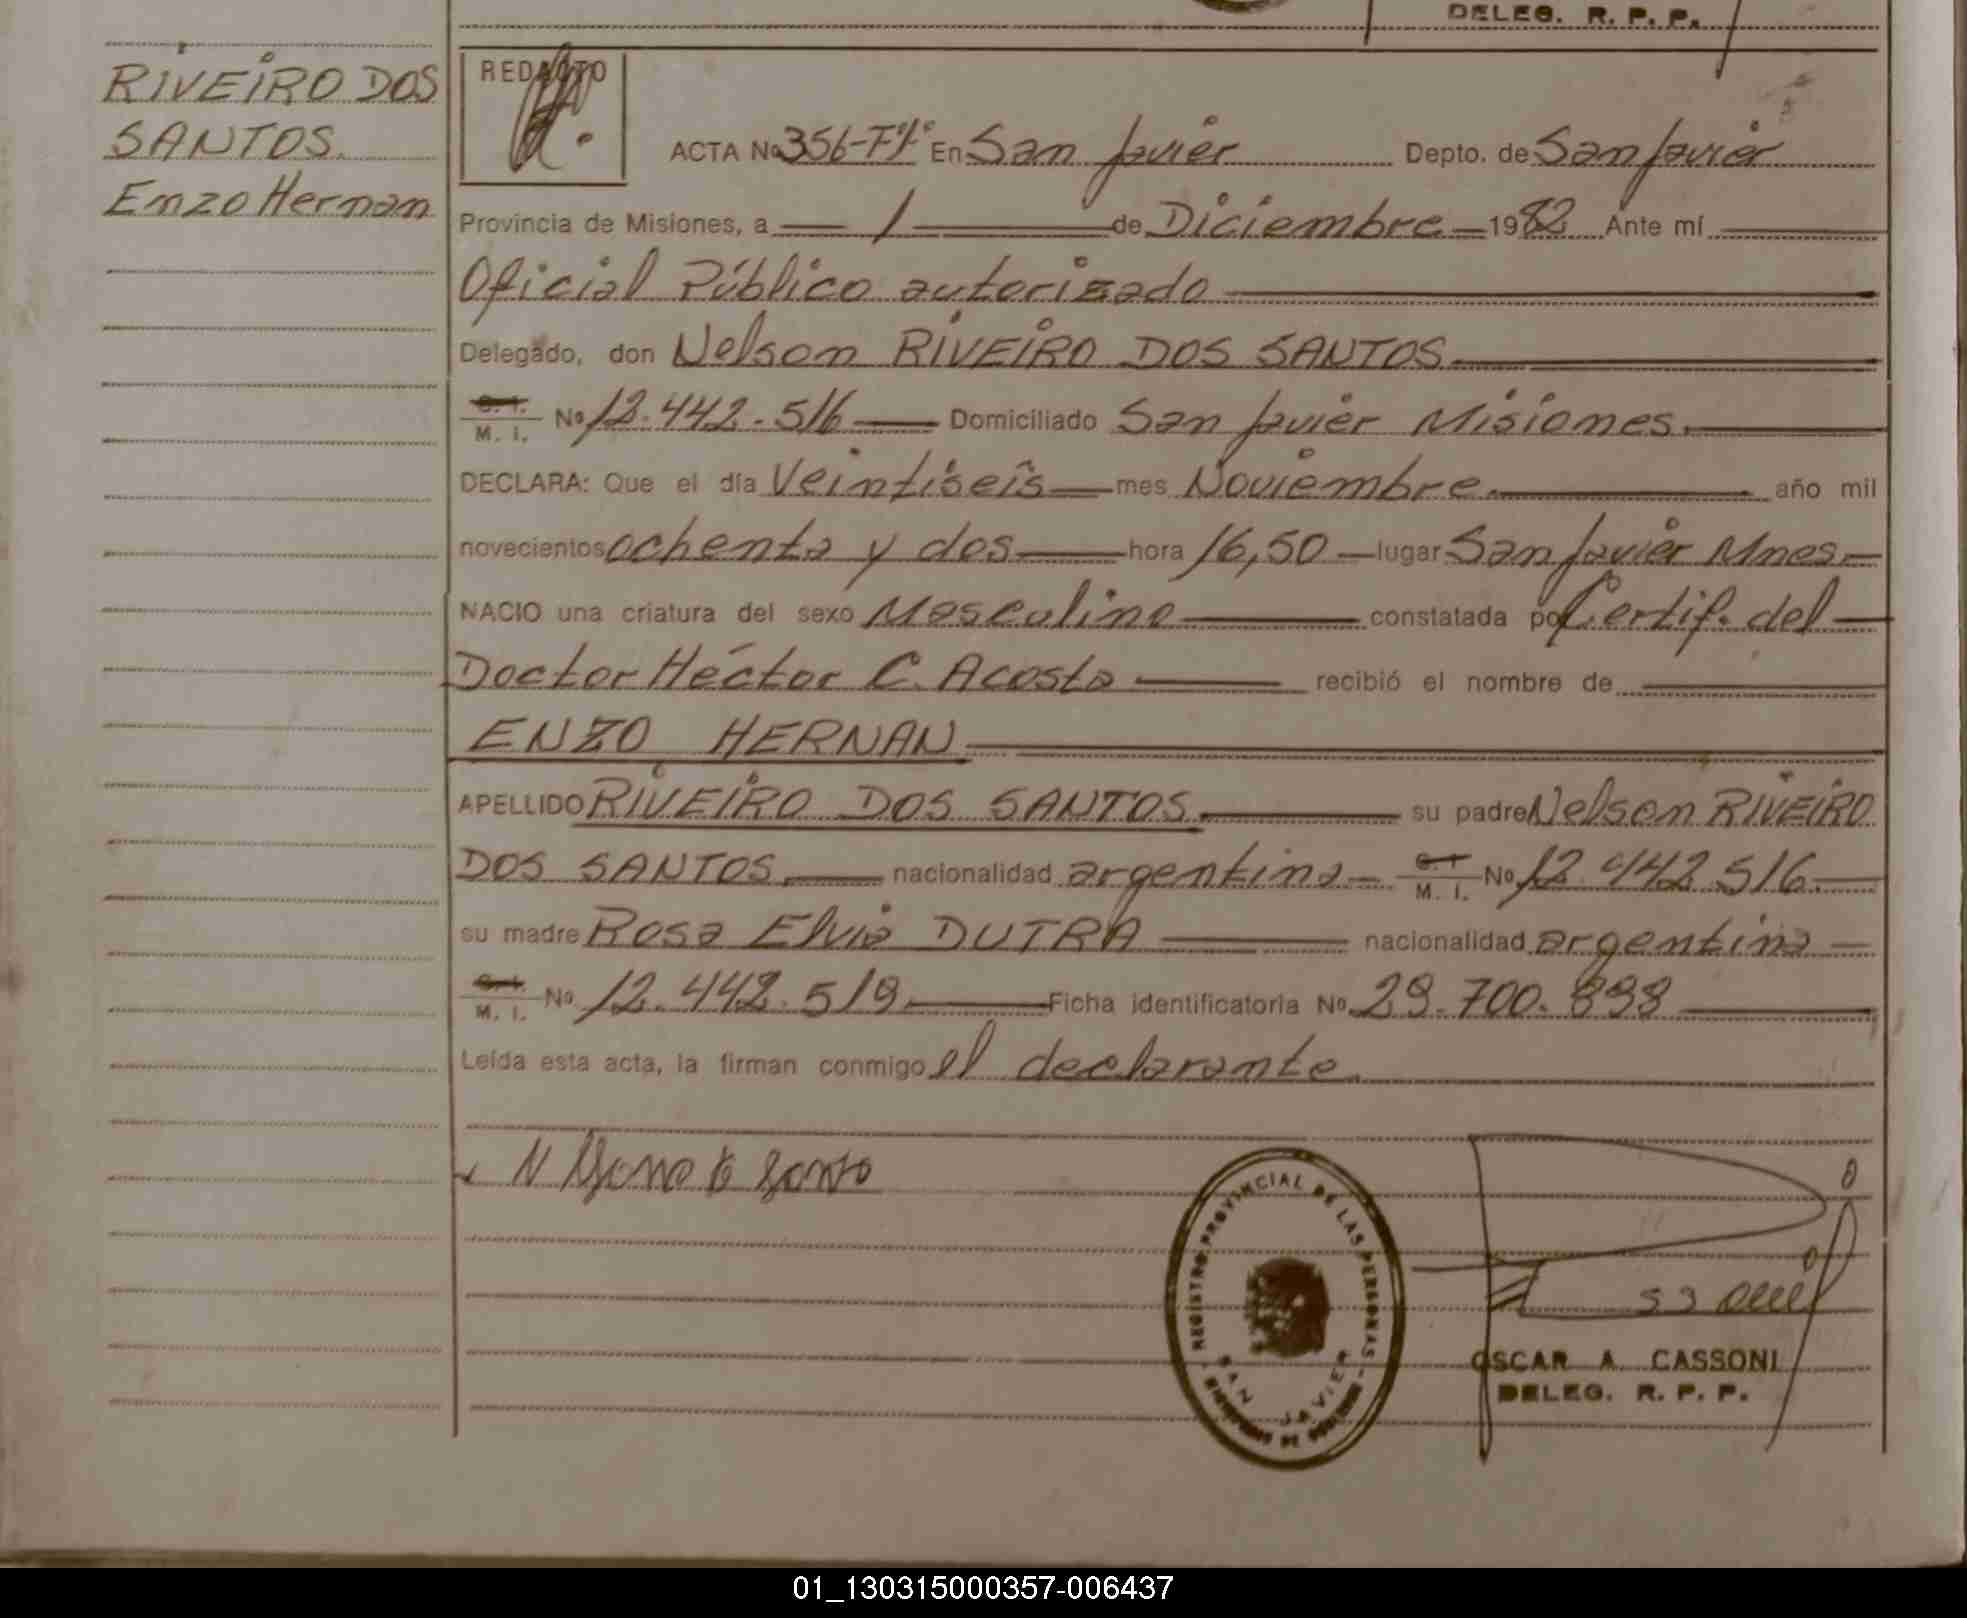 DELEG. R. P. P.
RIVEIRO DOS
SANTOS.
Enzo Hernan
REDACTO
ACTA No 356-Tº1º En San Javier Depto. de San Javier
Provincia de Misiones, a 1 de Diciembre 1982 Ante mí
Oficial Público autorizado
Delegado, don Nelson RIVEIRO DOS SANTOS
C. I.
M. I. No 12.442.516 Domiciliado San Javier Misiones.
DECLARA: Que el día Veintiseis mes Noviembre. año mil
novecientos ochenta y dos hora 16,50 lugar San Javier Mnes.
NACIO una criatura del sexo Masculino constatada por Certif. del
Doctor Héctor C. Acosta recibió el nombre de
ENZO HERNAN
APELLIDO RIVEIRO DOS SANTOS su padre Nelson RIVEIRO
DOS SANTOS nacionalidad argentina C. I. M. I. No 12.442.516
su madre Rosa Elvia DUTRA nacionalidad argentina
C. I.
M. I. No 12.442.519 Ficha identificatoria No 29.700.898
Leída esta acta, la firman conmigo el declarante.
REGISTRO PROVINCIAL DE LAS PERSONAS
SAN JAVIER
OSCAR A. CASSONI
DELEG. R. P. P.
01_130315000357-006437